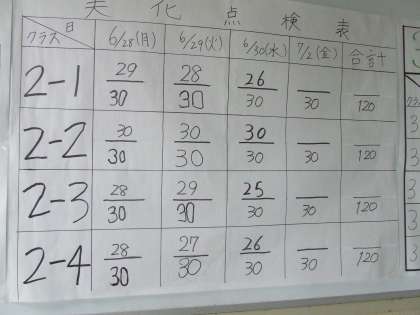 美化点検表
クラス 日 6/28(月) 6/29(火) 6/30(水) 7/2(金) 合計
2-1 29/30 28/30 26/30 /30 /120
2-2 30/30 30/30 30/30 /30 /120
2-3 28/30 29/30 25/30 /30 /120
2-4 28/30 27/30 26/30 /30 /120